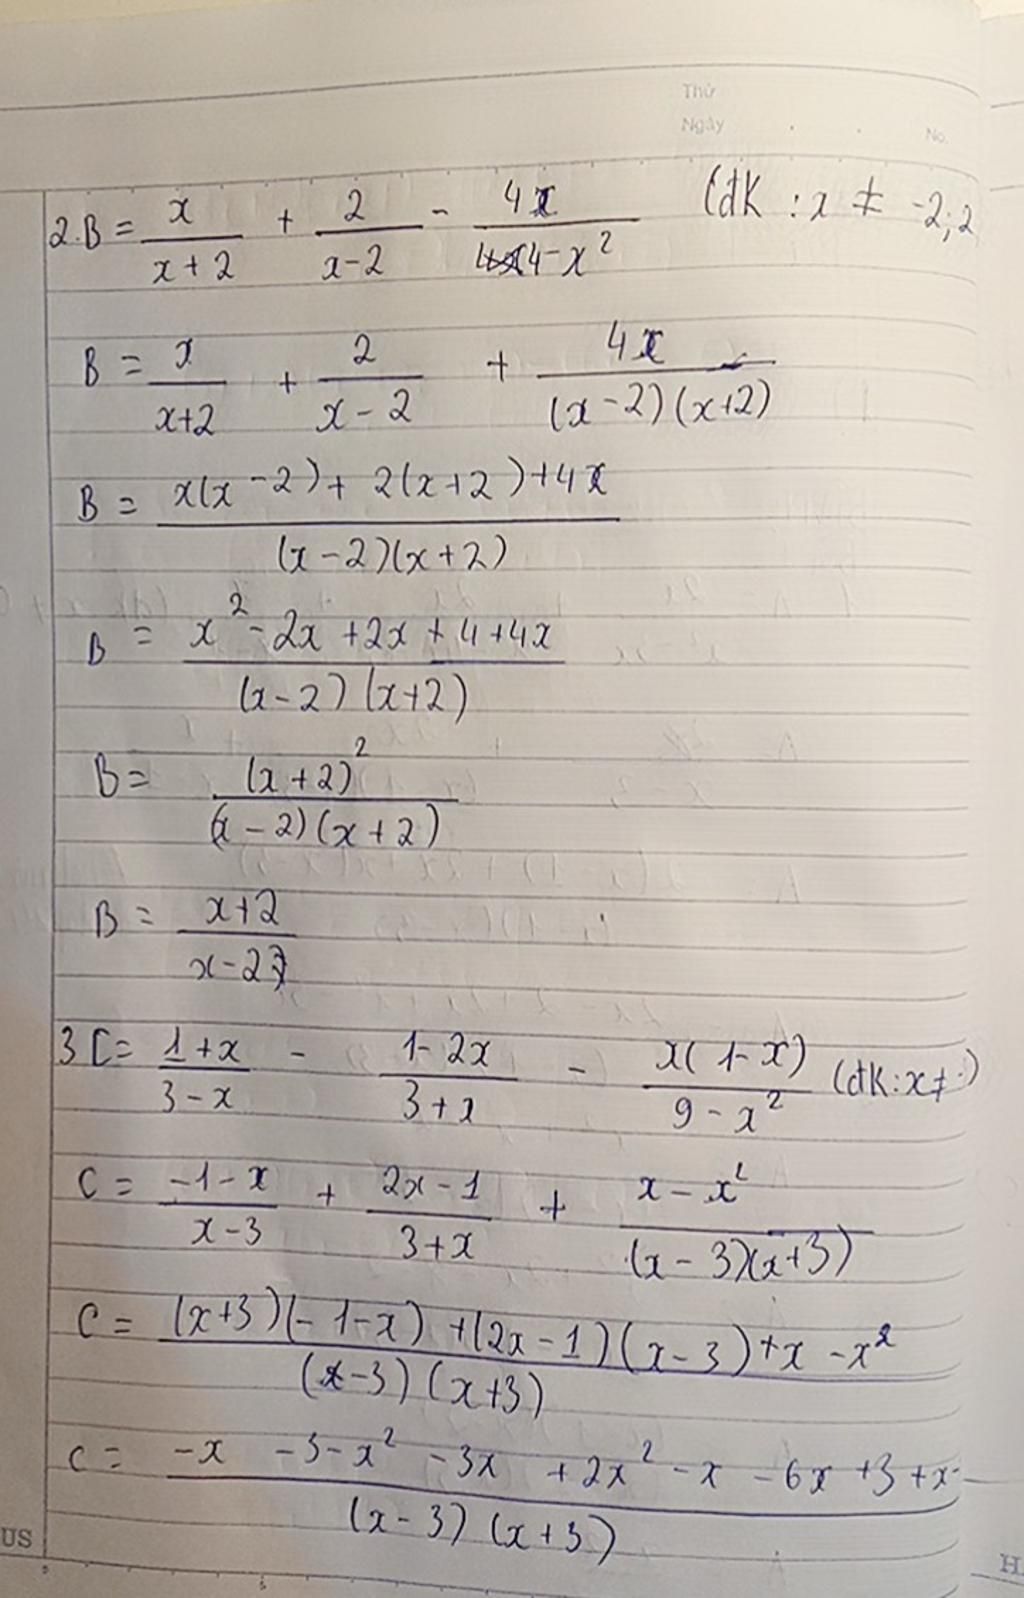 Thứ
Ngày
No.
2.B = x/(x+2) + 2/(x-2) - 4x/(4-x²) (đK : x ≠ -2; 2
B = x/(x+2) + 2/(x-2) + 4x/((x-2)(x+2))
B = (x(x-2) + 2(x+2) + 4x)/((x-2)(x+2))
B = (x² - 2x + 2x + 4 + 4x)/((x-2)(x+2))
B = (x+2)²/((x-2)(x+2))
B = (x+2)/(x-2)
3 C = (1+x)/(3-x) - (1-2x)/(3+x) - x(1-x)/(9-x²) (đK : x ≠ )
C = (-1-x)/(x-3) + (2x-1)/(3+x) + (x-x²)/((x-3)(x+3))
C = ((x+3)(-1-x) + (2x-1)(x-3) + x - x²)/((x-3)(x+3))
C = (-x - 3 - x² - 3x + 2x² - x - 6x + 3 + x -)/((x-3)(x+3))
US
H